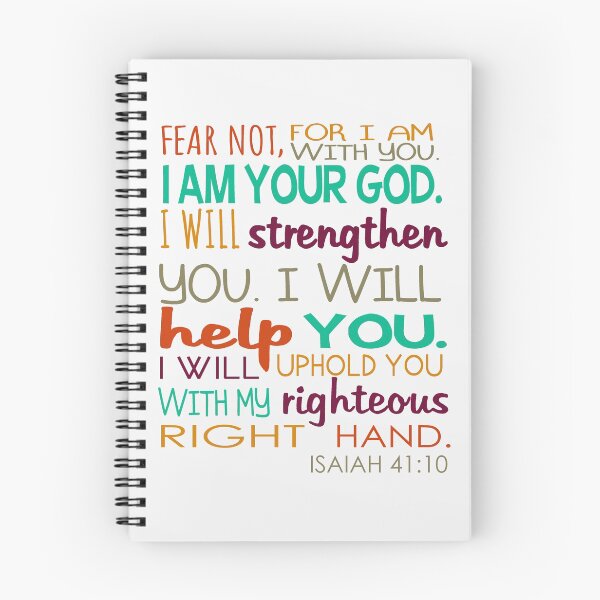 FEAR NOT, FOR I AM
WITH YOU.
I AM YOUR GOD.
I WILL strengthen
YOU. I WILL
help YOU.
I WILL UPHOLD YOU
WITH MY righteous
RIGHT HAND.
ISAIAH 41:10